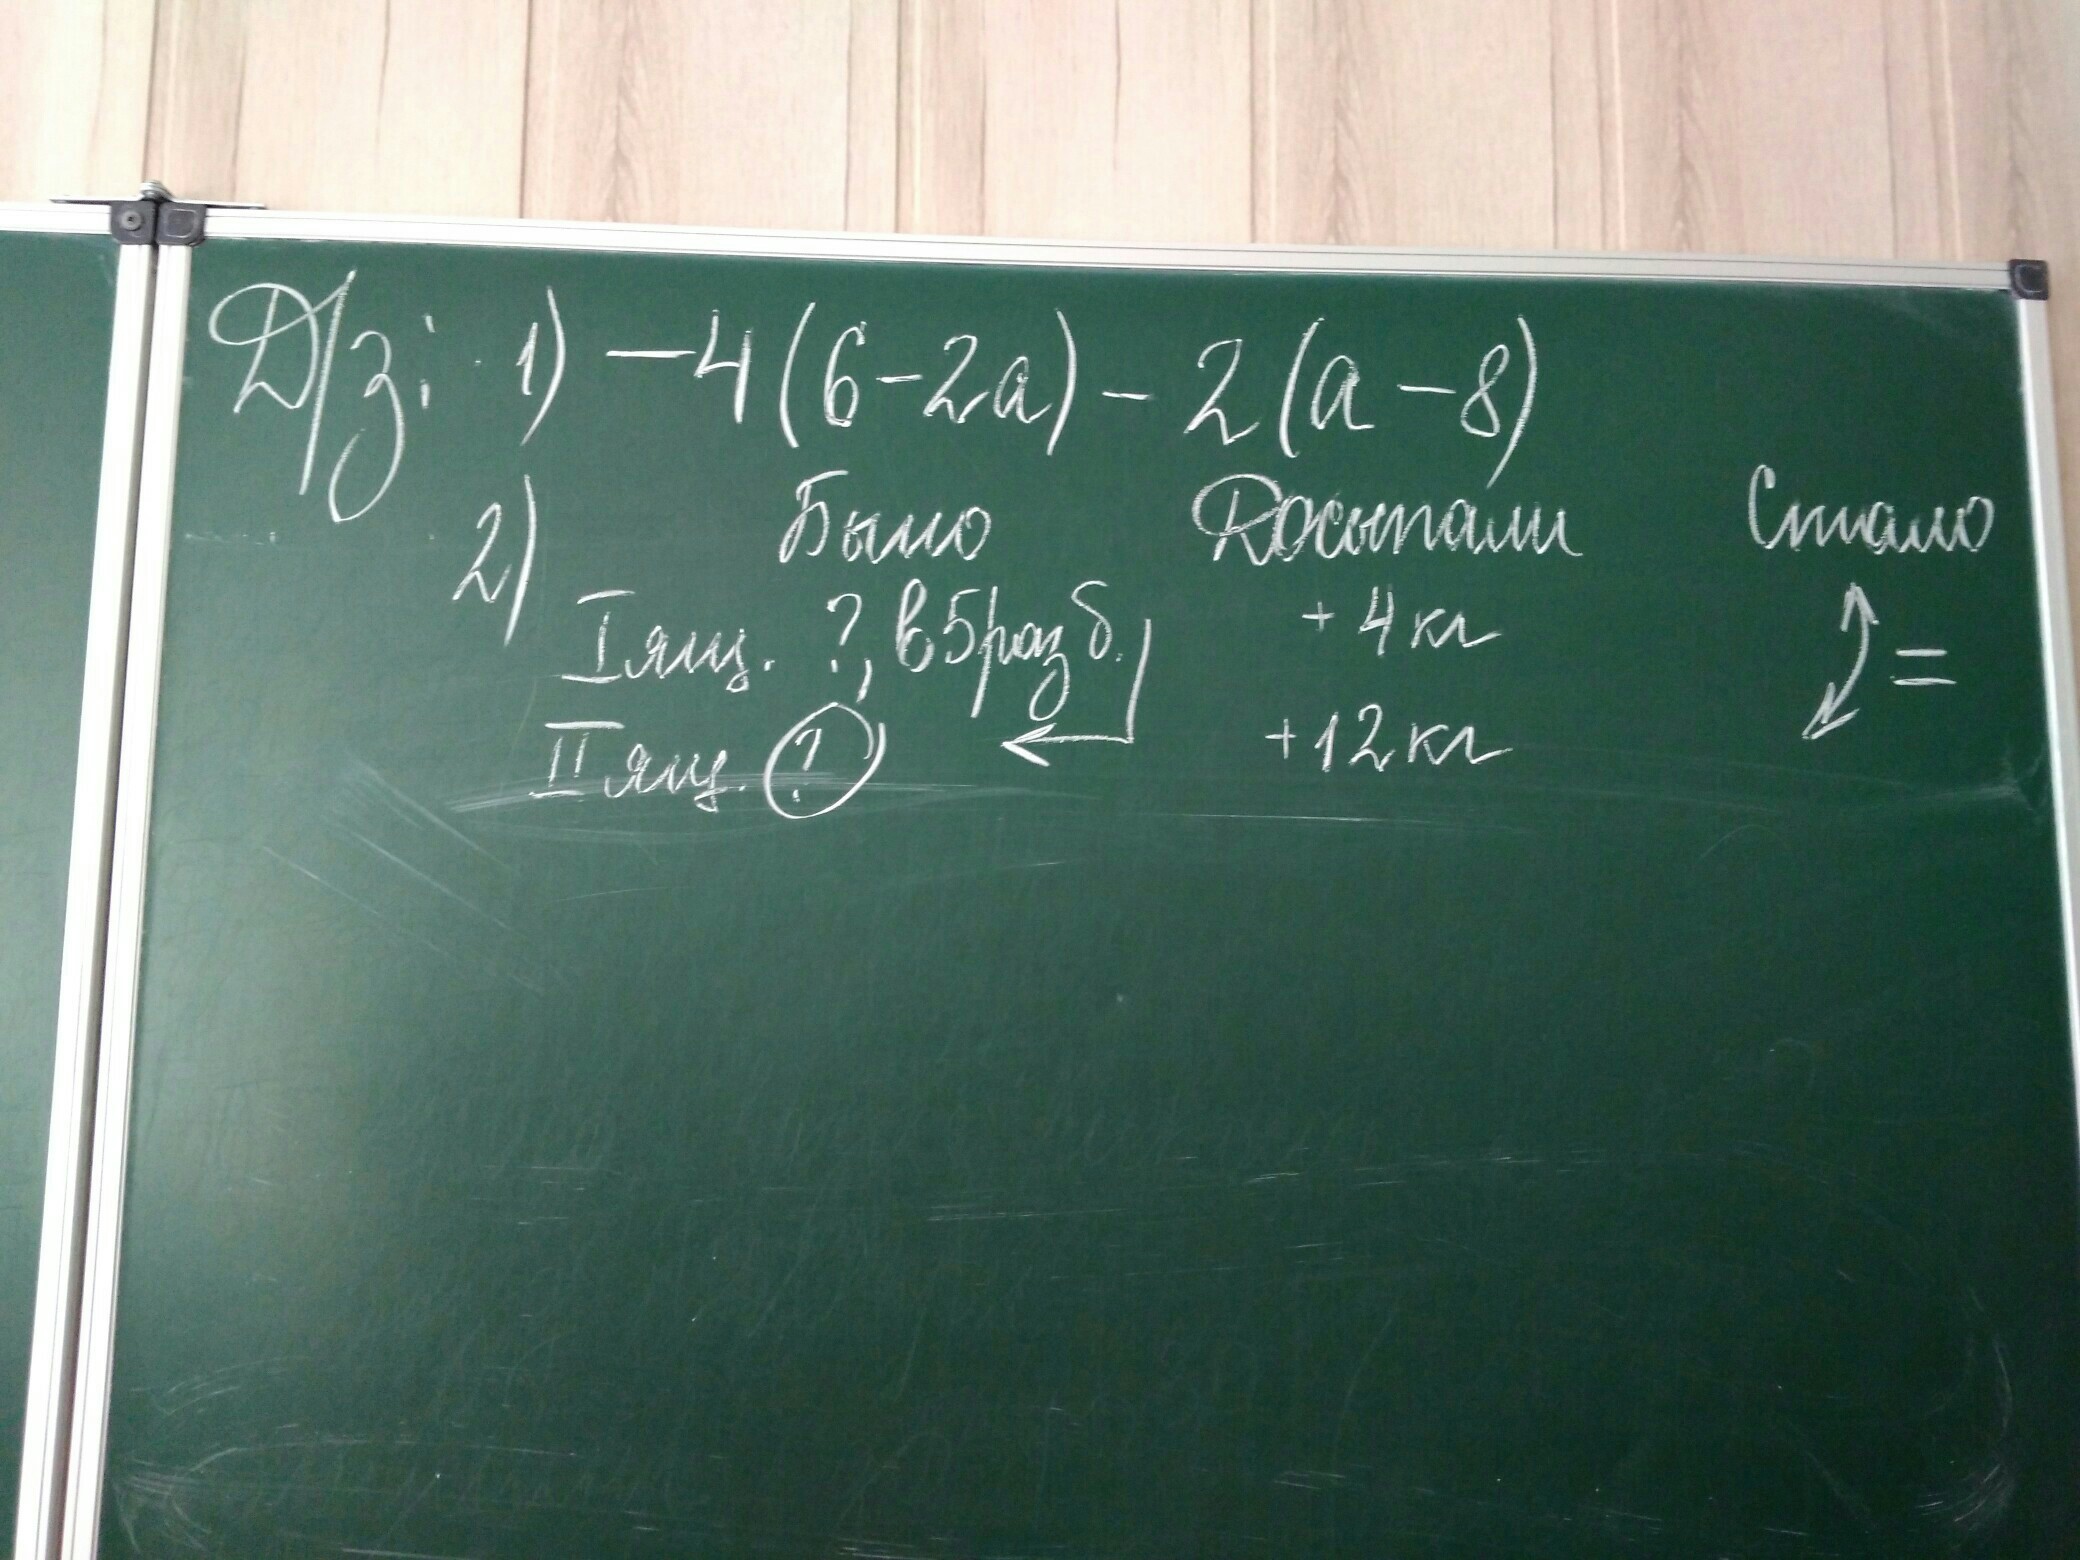 Д/з: 1) -4(6-2a) - 2(a-8)
2) Было Досыпали Стало
I ящ. ?, в 5 раз б. +4 кг
=
II ящ. ? +12 кг